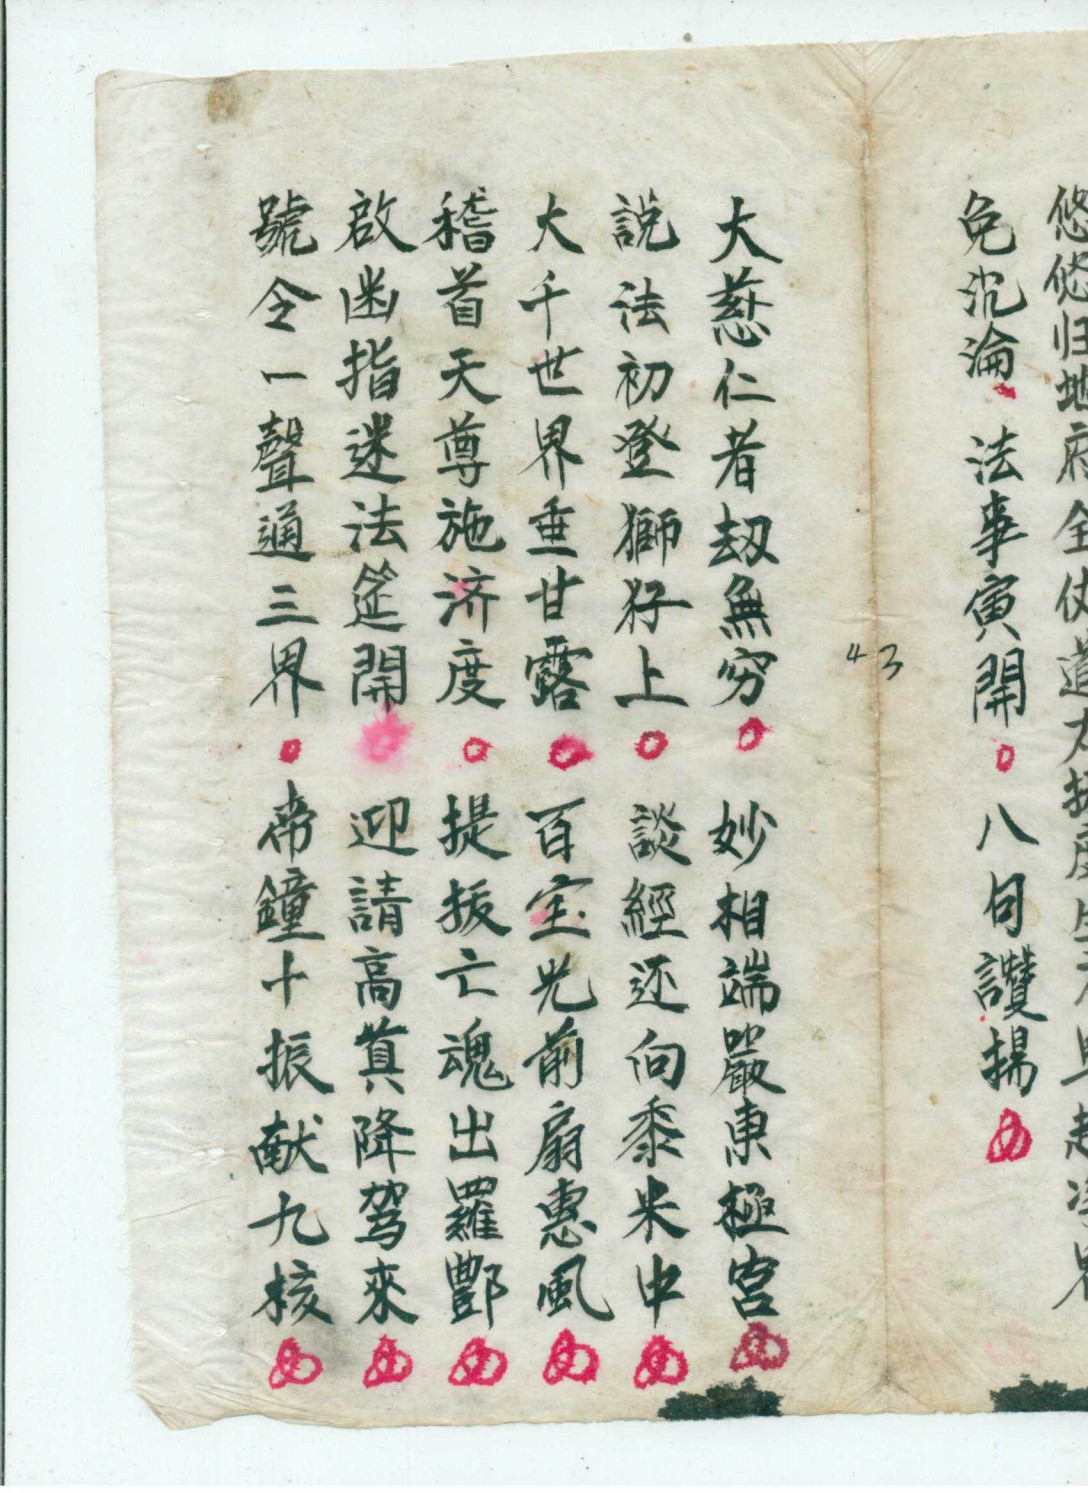 悠悠归地府全仗道
免沉淪 法事寅開 八句讚揚
43
大慈仁者劫無穷 妙相端嚴東極宮
説法初登獅犼上 談經还向黍米中
大千世界垂甘露 百宝光前扇惠风
稽首天尊施济度 提拔亡魂出羅酆
啟函指迷法筵開 迎請高真降驾來
號令一聲通三界 帝鐘十振献九核